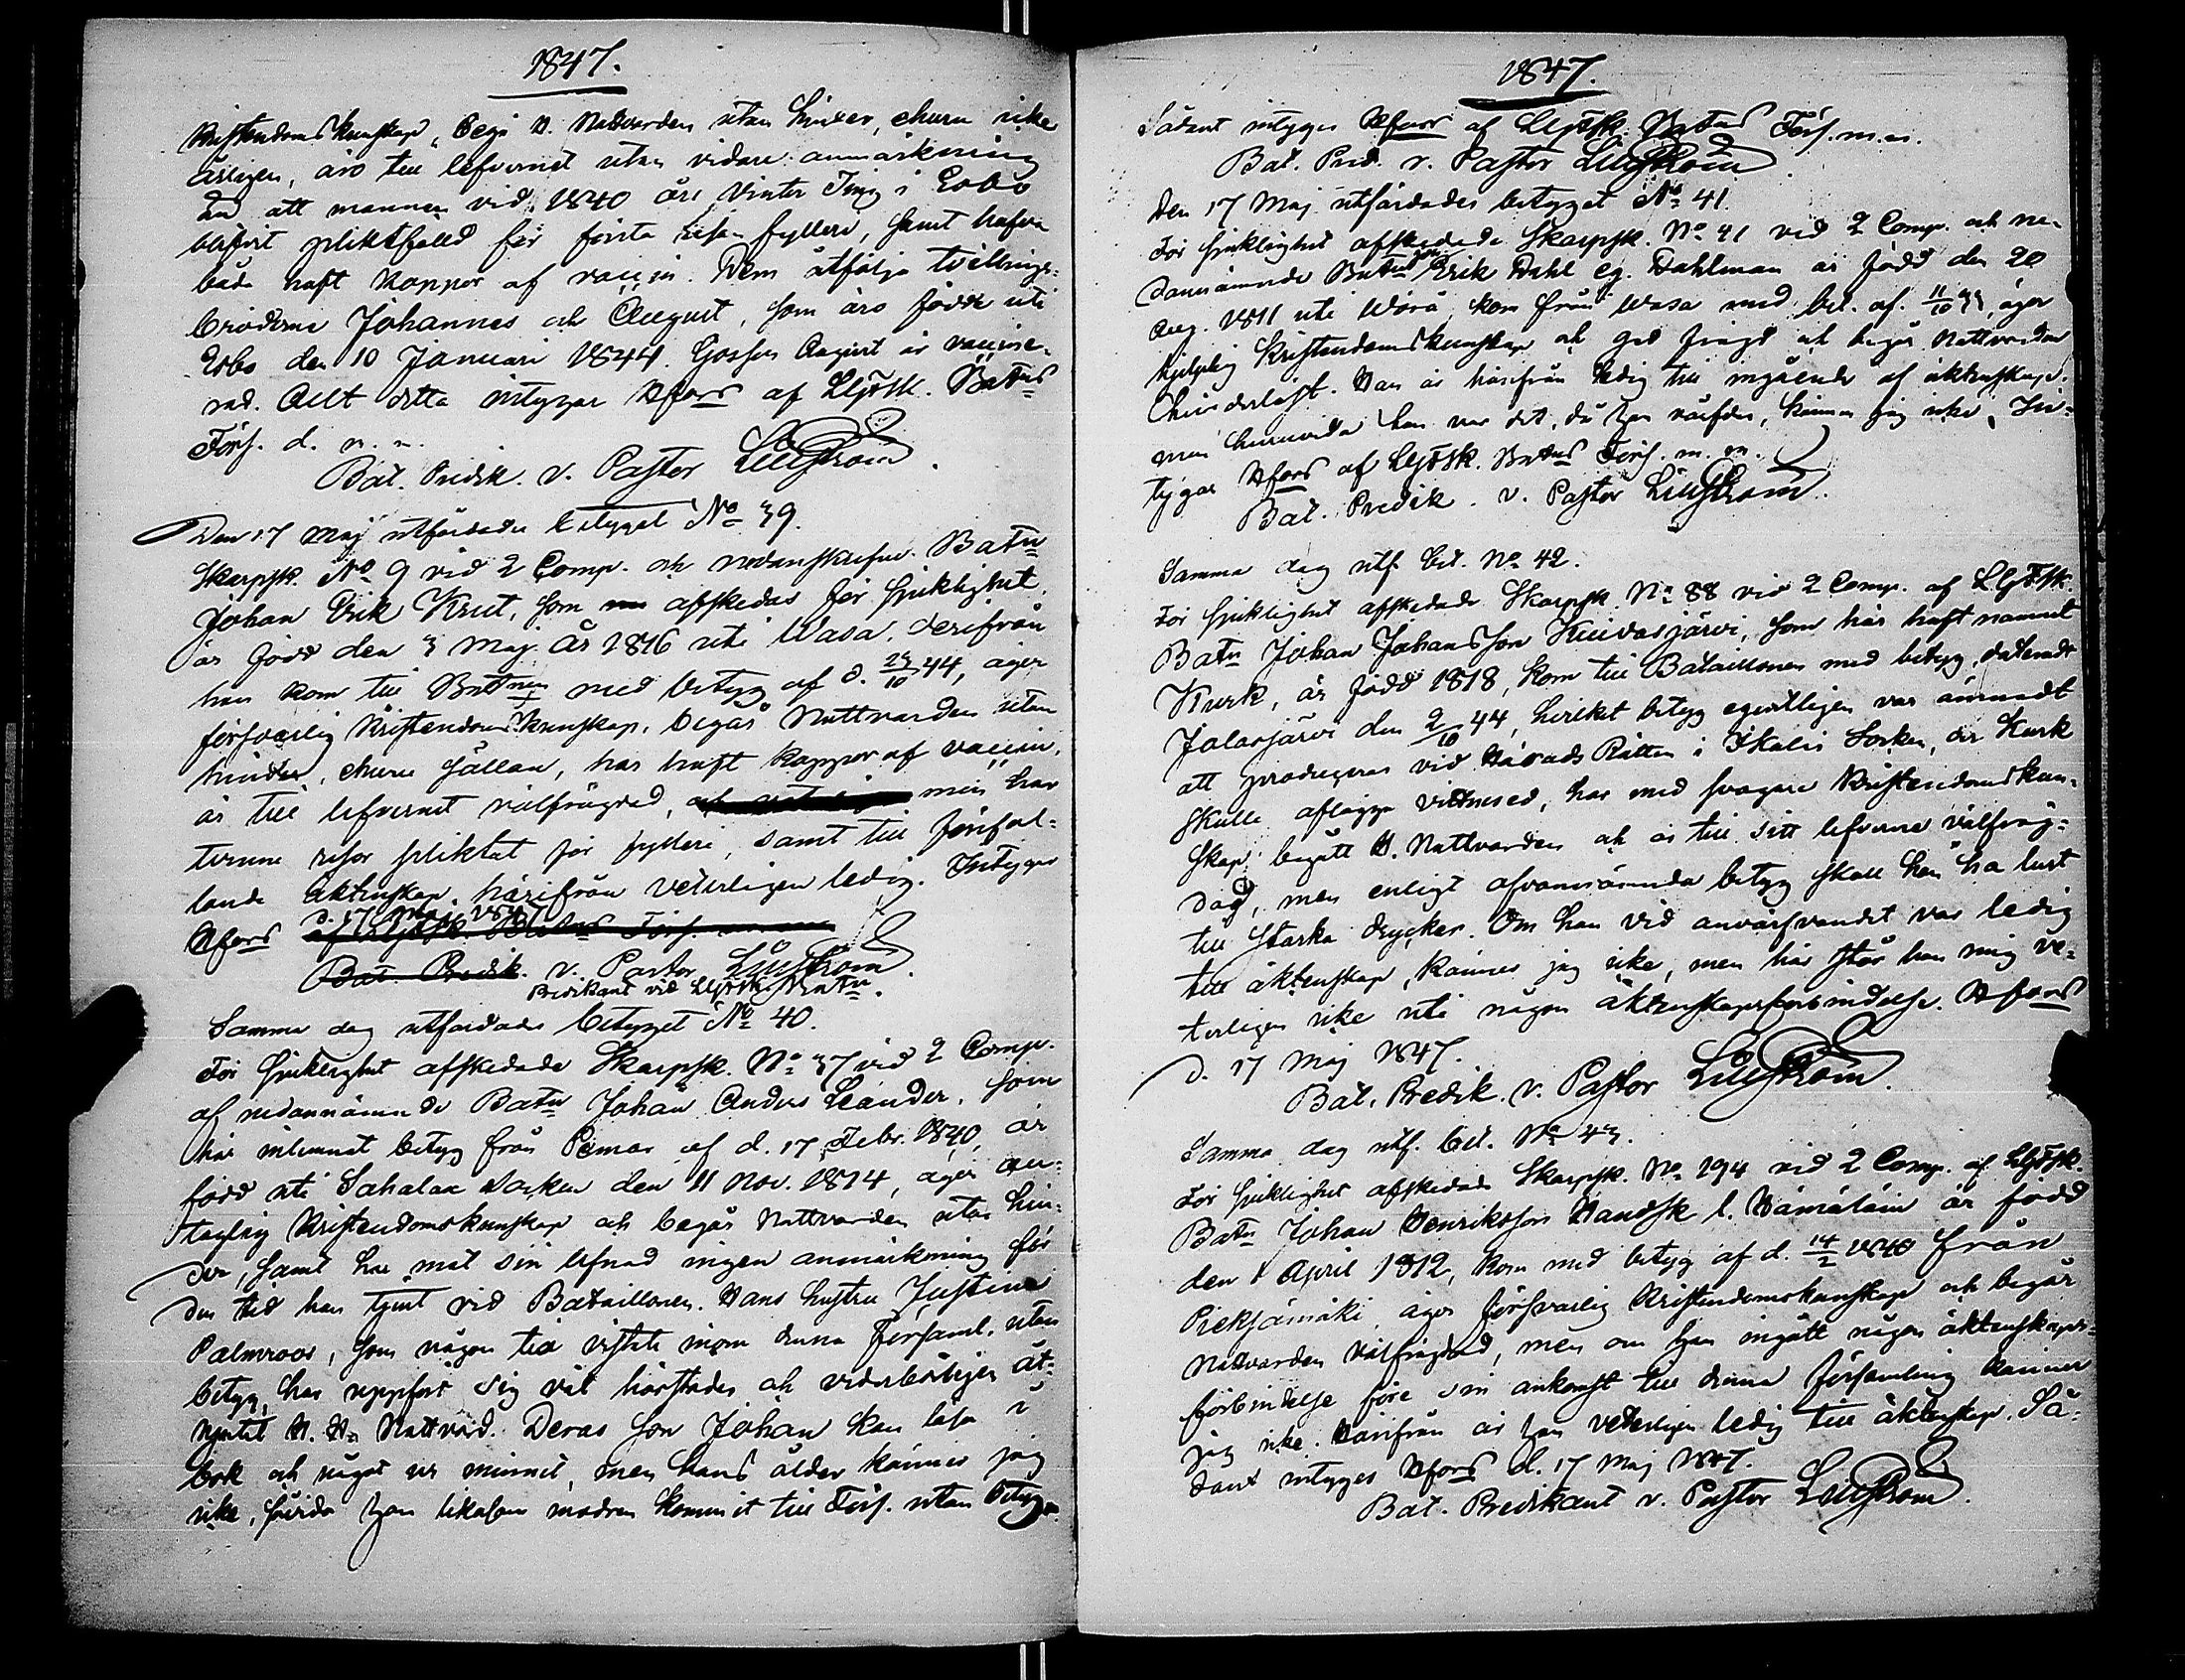 1847.
Kristendomskunskap, begå H. Nattvarden utan hinder, ehuru icke
årligen, äro till lefvernet utan vidare anmärkning
än att mannen vid 1840 års Vinter Ting i Esbo
blifvit pliktfälld för första resan fylleri, samt hafva
båda haft koppor af vaccin. Dem åtfölja tvillings-
bröderne Johannes och August, som äro födde uti
Esbo den 10 Januari 1844. Gossen August är vaccine-
rad. Allt detta intygar Hfors af LGFsk. Batns
Förs. d.
Bat. Predik. v. Pastor Lillström.
Den 17 Maj utfärdades betyget No 39.
Skarpsk. No 9 vid 2 Comp. och nedanskrifne Batn
Johan Erik Krut, som afskedas för sjuklighet,
är född den 3 Maj år 1816 uti Wasa, derifrån
han kom till Batnen med betyg af d. 29/10 44, äger
försvarlig Kristendomskunskap, begår Nattvarden utan
hinder, ehuru sällan, har haft koppor af vaccin,
är till lefvernet välfrägdad, men har
tvenne resor pliktat för fylleri, samt till förefal-
lande äktenskap härifrån veterligen ledig. Intygar
Hfors d. 17 Maj 1847
af LGFsk. Batns Förs.
Bat. Predik. v. Pastor Lillström.
Predikant vid LGFsk Batn.
Samma dag utfärdades betyget No 40.
För sjuklighet afskedade Skarpsk. No 37 vid 2 Comp.
af nedannämnde Batn Johan Anders Leander, som
här inlemnat betyg från Pemar af d. 17 Febr. 1840, är
född uti Sahalax Socken den 11 Nov. 1814, äger an-
taglig Kristendomskunskap och begår Nattvarden utan hin-
der, samt har mot sin lefnad ingen anmärkning för
den tid han tjent vid Bataillonen. Hans hustru Justina
Palmroos, som någon tid vistats inom denna Församl. utan
betyg, har uppfört sig väl härstädes och vederbörligen åt-
njutit H. Hs Nattvard. Deras son Johan kan läsa i
bok och något ur minnet, men hans ålder känner jag
icke, sedan han likasom modren kommit till Förs. utan betyg.
1847.
Sådant intygas Hfors af LGFsk. Batns Förs. m.m.
Bat. Pred. v. Pastor Lillström
Den 17 Maj utfärdades betyget No 41.
För sjuklighet afskedade Skarpsk. No 41 vid 2 Comp. och ne-
dannämnde Batn Erik Dahl eg. Dahlman är född den 20
Aug. 1811 uti Wörå, kom från Wasa med bet. af 11/10 39, äger
hjelplig Kristendomskunskap och god frägd och begår Nattvarden
hinderlöst. Han är härifrån ledig till ingående af äktenskap,
men huruvida han var det, då han värfdes, känner jag icke, In-
tygar Hfors af LGFsk. Batns Förs. m. m.
Bat. Predik. v. Pastor Lillström.
Samma dag utf. bet. No 42.
För sjuklighet afskedade Skarpsk. No 88 vid 2 Comp. af LGFsk.
Batn Johan Johansson Kuivasjärvi, som här haft namnet
Kurk, är född 1818, kom till Bataillonen med betyg, dateradt
Jalasjärvi den 2/10 44, hvilket betyg egentligen var ämnadt
att produceras vid Härads Rätten i Ikalis Socken, der Kurk
skulle aflägga vittnesed, har med svagare Kristendomskun-
skap begått H. Nattvarden och är till sitt lefverne välfräg-
dad, men enligt ofvannämnda betyg skall han ha lust
till starka drycker. Om han vid anvärfvandet var ledig
till äktenskap, känner jag icke, men här står han mig ve-
terligen icke uti någon äktenskapsförbindelse. Hfors
d. 17 Maj 1847.
Bat. Predik. v. Pastor Lillström.
Samma dag utf. bet. No 43.
För sjuklighet afskedade Skarpsk. No 194 vid 2 Comp. af LGFsk.
Batn Johan Henriksson Handsk l. Hämäläin är född
den 1 April 1812, kom med betyg af d. 14/2 1840 från
Pieksämäki, äger försvarlig Kristendomskunskap och begår
Nattvarden välfrägdad, men om han ingått någon äktenskaps-
förbindelse före sin ankomst till denna församling känner
jag icke. Härifrån är han veterligen ledig till äktenskap. Så-
dant intygas Hfors d. 17 Maj 1847.
Bat. Predikant v. Pastor Lillström.